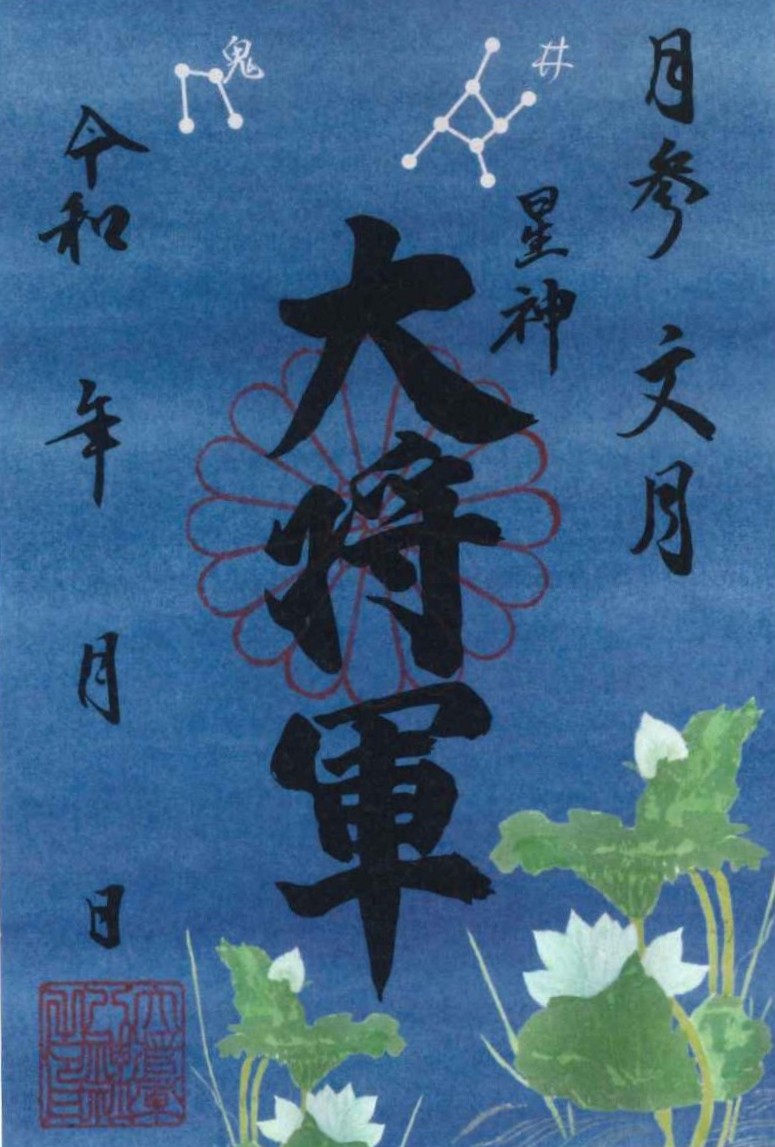 月参 文月
井
星神
大将軍
鬼
令和 年 月 日